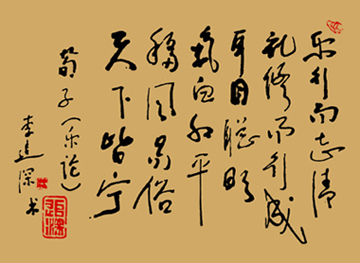 乐行而志清
礼修而行成
耳目聪明
气血和平
移风易俗
天下皆宁
荀子（乐论）
李深书